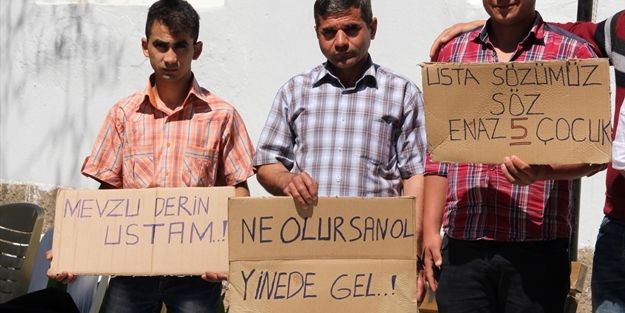 MEVZU DERİN
USTAM..!
NE OLURSAN OL
YİNEDE GEL..!
USTA SÖZÜMÜZ
SÖZ
ENAZ 5 ÇOCUK